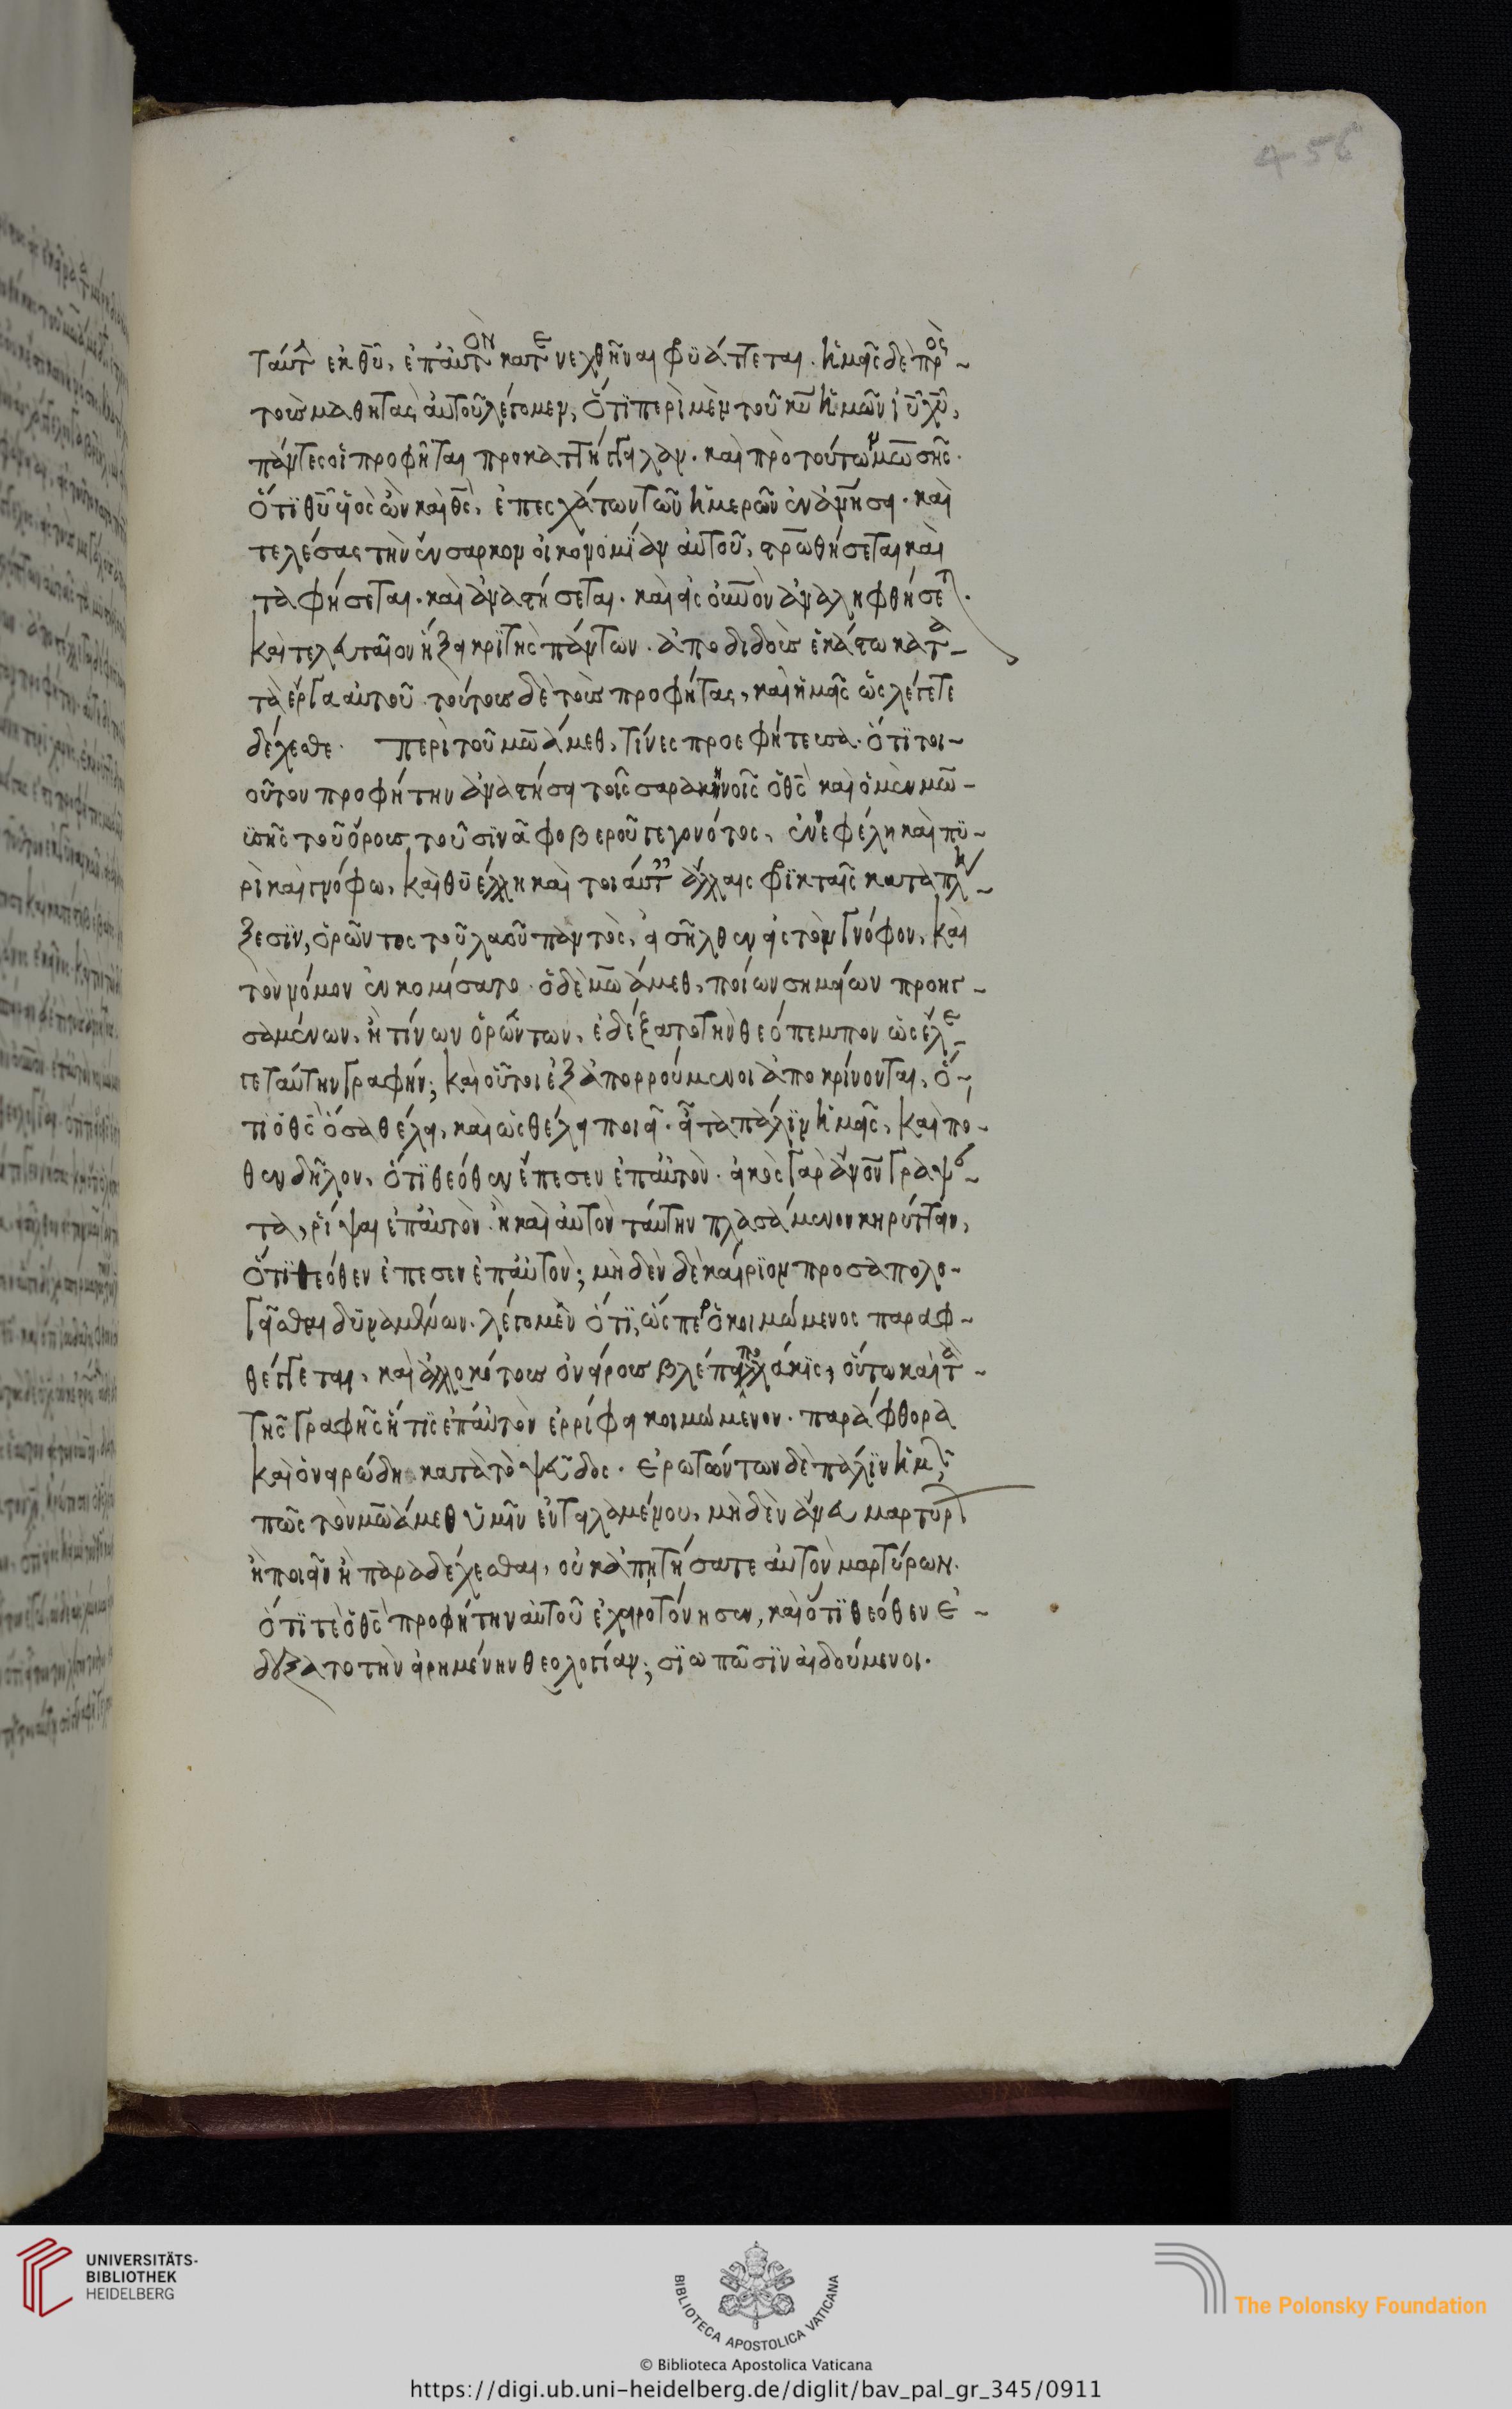 456
ταύτ ἐκ θῦ, ἐπ' αὐτὸν κατενεχθῆναι φϋάττεται. ἡμεῖς δὲ πρὸς
τοὺς μαθητὰς αὐτοῦ λέγομεν, ὅτϊ περὶ μὲν τοῦ κῦ ἡμῶν ἰῦ χῦ,
πάντες οἱ προφῆται προκατήγγειλαν. καὶ πρὸ τούτων μωσῆς.
ὅτϊ θῦ υἱὸς ὢν καὶ θς, ἐπ' ἐσχάτων τῶν ἡμερῶν ἐνανήσει. καὶ
τελέσας τὴν ἔνσαρκον οἰκονομίαν αὐτοῦ, στρωθήσεται καὶ
ταφήσεται. καὶ ἀναστήσεται. καὶ εἰς οὐνὸν ἀναληφθήσετ.
καὶ τελευταῖον ἥξει κρϊτὴς πάντων. ἀποδιδοὺς ἑκάστω κατὰ
τὰ ἔργα αὐτοῦ. τούτους δὲ τοὺς προφήτας, καὶ ἡμεῖς ὡς λέγετε
δέχεσθε. περὶ τοῦ μωάμεθ, τίνες προεφήτευσα. ὅτϊ τοι-
οῦτον προφήτην ἀναστήσει τοῖς σαρακηνοῖς ὁ θς καὶ ὁ μὲν μω-
ϋσῆς τοῦ ὄρους τοῦ σϊνᾶ φοβεροῦ γεγονότος, ἐν νεφέλη καὶ πϋ-
ρὶ καὶ γνόφω, καὶ θϋέλλη καὶ τοιαύτ ἄλλαις φρϊκταῖς καταπλή-
ξεσϊν, ὁρῶντος τοῦ λαοῦ παντὸς, εἰσῆλθεν εἰς τὸν γνόφον, καὶ
τὸν νόμον ἐνκομίσατο. ὁ δὲ μωάμεθ, ποίων σημείων προηγ-
σαμένων, ἢ τίνων ὁρώντων, ἐδέξατο τὴν θεόπεμπον ὡς ἐλέ-
γε ταύτην γραφήν; καὶ οὗτοι ἐξαπορρούμενοι ἀποκρίνονται, ὅ-
τϊ ὁ θς ὅσα θέλει, καὶ ὡς θέλει ποιεῖ. εἶτα πάλϊν ἡμεῖς, καὶ πό-
θεν δῆλον, ὅτϊ θεόθεν ἔπεσεν ἐπ' αὐτὸν. εἰκὸς γὰρ ἀνον γράψ-
τα, ῥίψαι ἐπ' αὐτὸν. ἢ καὶ αὐτὸν ταύτην πλασάμενον κηρύττειν,
ὅτϊ θεόθεν ἔπεσεν ἐπ' αὐτὸν; μηδὲν δὲ καίρϊον προσαπολο-
γεῖσθαι δϋναμένων. λέγομεν ὅτϊ, ὥσπερ ὁ κοιμώμενος παραφ-
θέγγεται, καὶ ἀλλοκότους ὀνείρους βλέπει πολλάκϊς, οὕτω καὶ τὰ
τῆς γραφῆς ἥτϊς ἐπ' αὐτὸν ἐρρίφει κοιμώμενον. παράφθορα
καὶ ὀνειρώδη κατὰ τὸ ψεῦδος. ἐρωτώντων δὲ πάλϊν ἡμῶν,
πῶς τοῦ μωάμεθ ὑμῖν ἐνταλαμένου, μηδὲν ἄνευ μαρτύρ
ἢ ποιεῖν ἢ παραδέχεσθαι, οὐκ ἀπητήσατε αὐτὸν μαρτύρων.
ὅτϊ τὲ ὁ θς προφήτην αὐτοῦ ἐχειροτόνησεν, καὶ ὅτϊ θεόθεν ἐ-
δέξατο τὴν εἰρημένην θεολογίαν; σϊωπῶσϊν αἰδούμενοι.
UNIVERSITÄTS-
BIBLIOTHEK
HEIDELBERG
BIBLIOTECA APOSTOLICA VATICANA
The Polonsky Foundation
© Biblioteca Apostolica Vaticana
https://digi.ub.uni-heidelberg.de/diglit/bav_pal_gr_345/0911